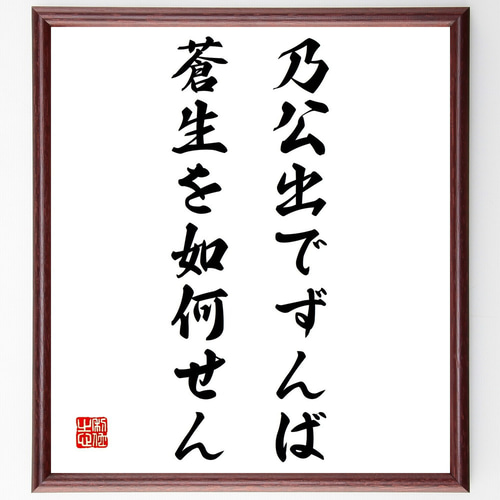 乃公出でずんば
蒼生を如何せん